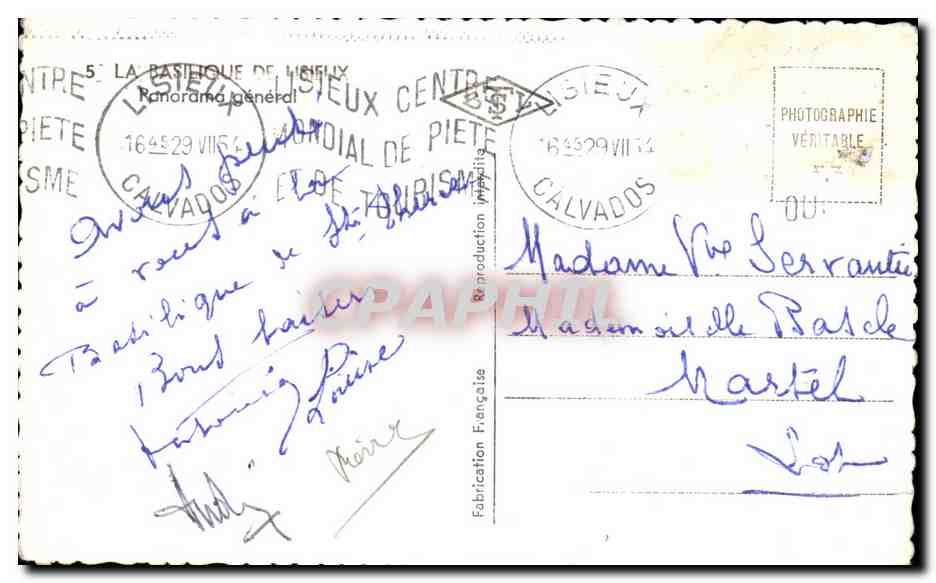 5 LA BASILIQUE DE LISIEUX
Panorama général
NTRE
PIETE
SME
LISIEUX
16 45 29 VII 54
CALVADOS
LISIEUX CENTRE
MONDIAL DE PIETE
ET DE TOURISME
LISIEUX
16 45 29 VII 54
CALVADOS
PHOTOGRAPHIE
VÉRITABLE
Avons pensé
à vous à la
Basilique de Ste Thérèse
Bons baisers
Louise
Pierre
CPAPHIL
Fabrication Française Reproduction interdite
Madame Vve Servantie
Mademoiselle
Martel
Lot